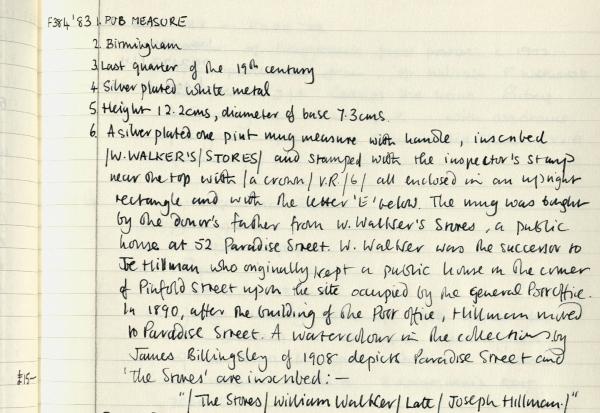 F384'83 1. PUB MEASURE
2. Birmingham
3. Last quarter of the 19th century
4. Silver plated white metal
5. Height 12.2cms, diameter of base 7.3cms.
6. A silver plated one pint mug measure with handle, inscribed
/W.WALKER'S/STORES/ and stamped with the inspector's stamp
near the top with /a crown/V.R/6/ all enclosed in an upright
rectangle and with the letter 'E' below. The mug was bought
by the donor's father from W. Walker's Stores, a public
house at 52 Paradise Street. W. Walker was the successor to
Joe Hillman who originally kept a public house in the corner
of Pinfold Street upon the site occupied by the General Post Office.
In 1890, after the building of the Post Office, Hillman moved
to Paradise Street. A watercolour in the collections by
James Billingsley of 1908 depicts Paradise Street and
£15- 'The Stores' are inscribed:-
"/The Stores/William Walker/Late/Joseph Hillman/"